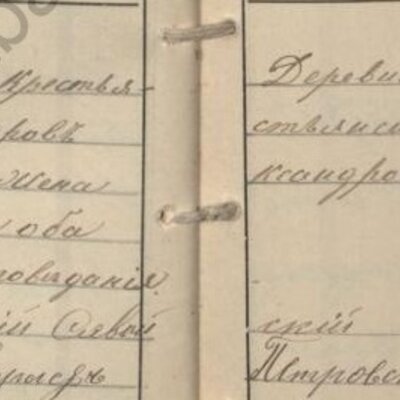 Крестья-
ровъ
жена
оба
поведанія
ій
Деревн
стьянс
ксандро
скій
Петровс